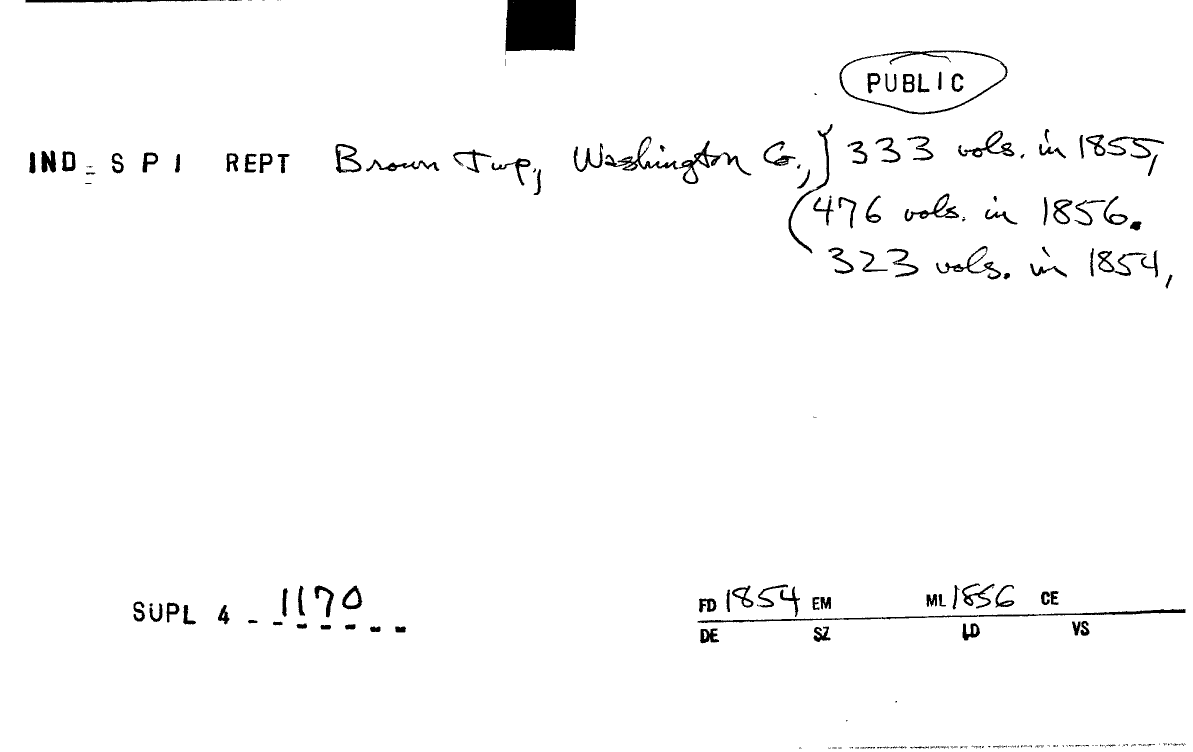 PUBLIC
IND - S P I REPT Brown Twp, Washington Co., 333 vols. in 1855,
476 vols. in 1856.
323 vols. in 1854,
SUPL 4 - 1170
FD 1854 EM ML 1856 CE
DE SZ LD VS